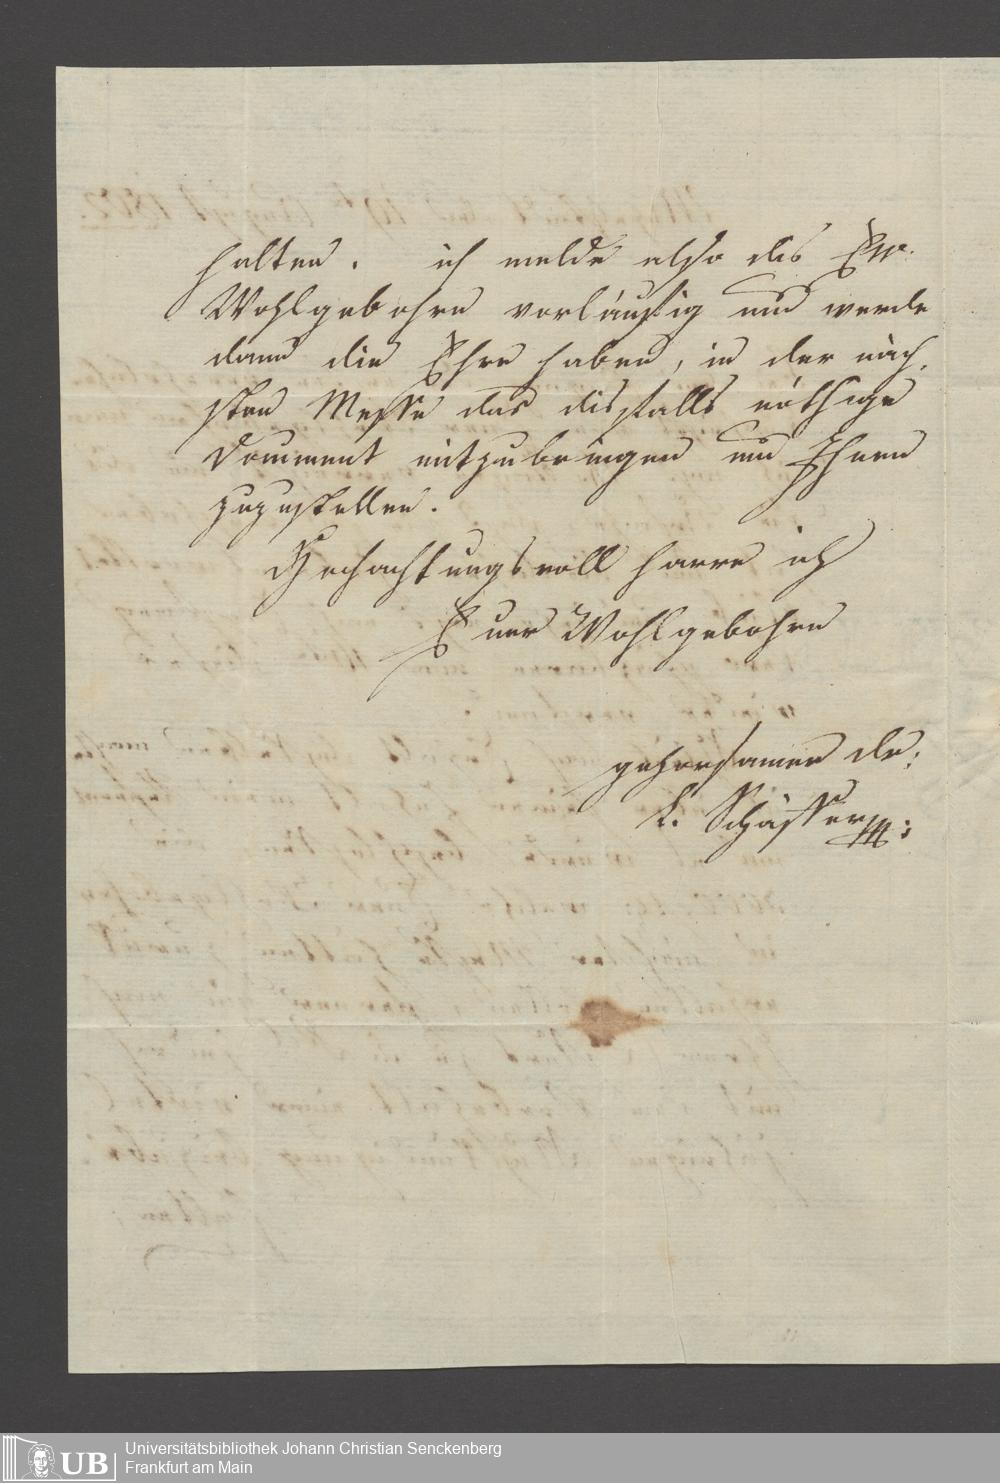 halten. ich melde also dis Ew.
Wohlgebohrn vorläufig und werde
dann die Ehre haben, in der näch,
sten Messe das disfalls nöthige
Document mitzubringen und Ihnen
zuzustellen.
Hochachtungsvoll harre ich
Euer Wohlgebohrn
gehorsamer Dr:
C. Schäffer
UB
Universitätsbibliothek Johann Christian Senckenberg
Frankfurt am Main